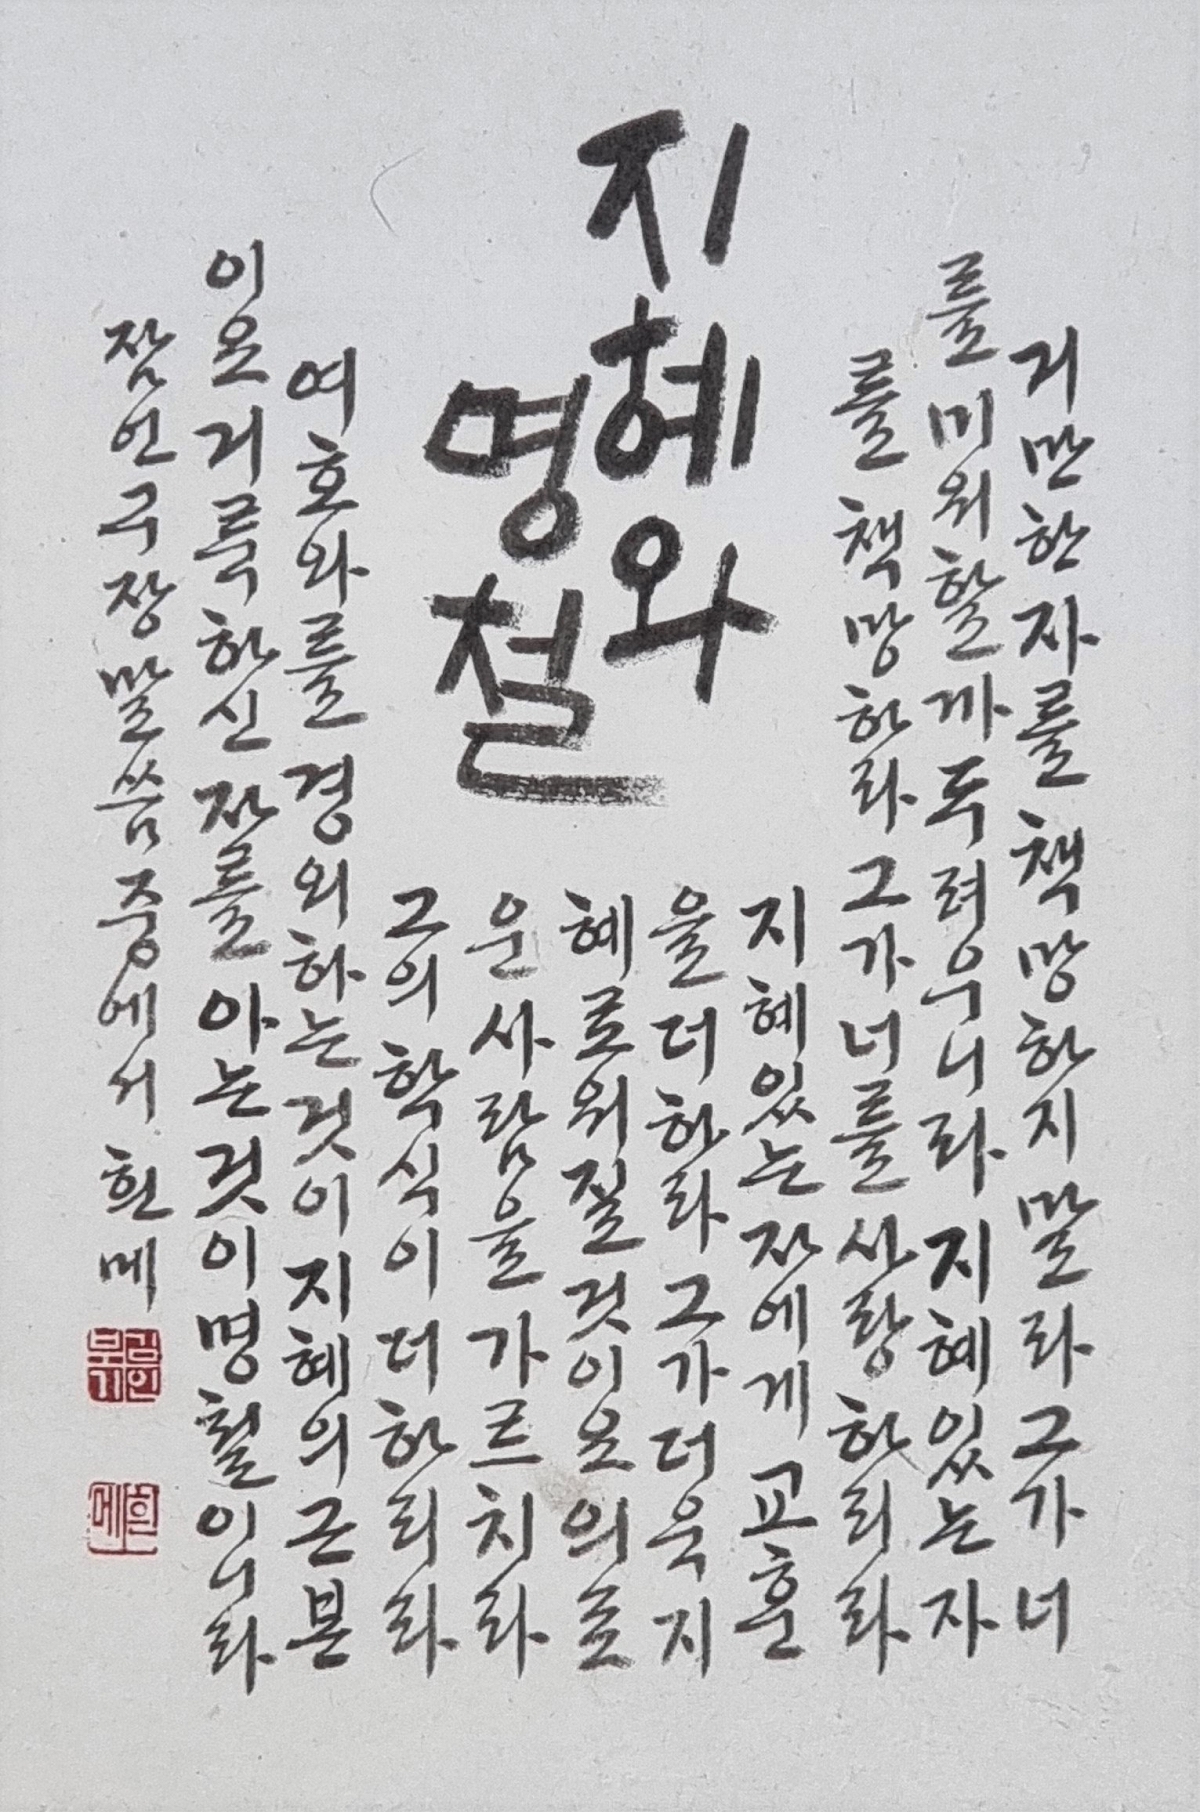 거만한 자를 책망하지 말라 그가 너
를 미워할까 두려우니라 지혜있는 자
를 책망하라 그가 너를 사랑하리라
지혜와
명철
지혜있는 자에게 교훈
을 더하라 그가 더욱 지
혜로워질 것이요 의로
운 사람을 가르치라
그의 학식이 더하리라
여호와를 경외하는 것이 지혜의 근본
이요 거룩하신 자를 아는 것이 명철이니라
잠언 구장 말씀 중에서 흰메